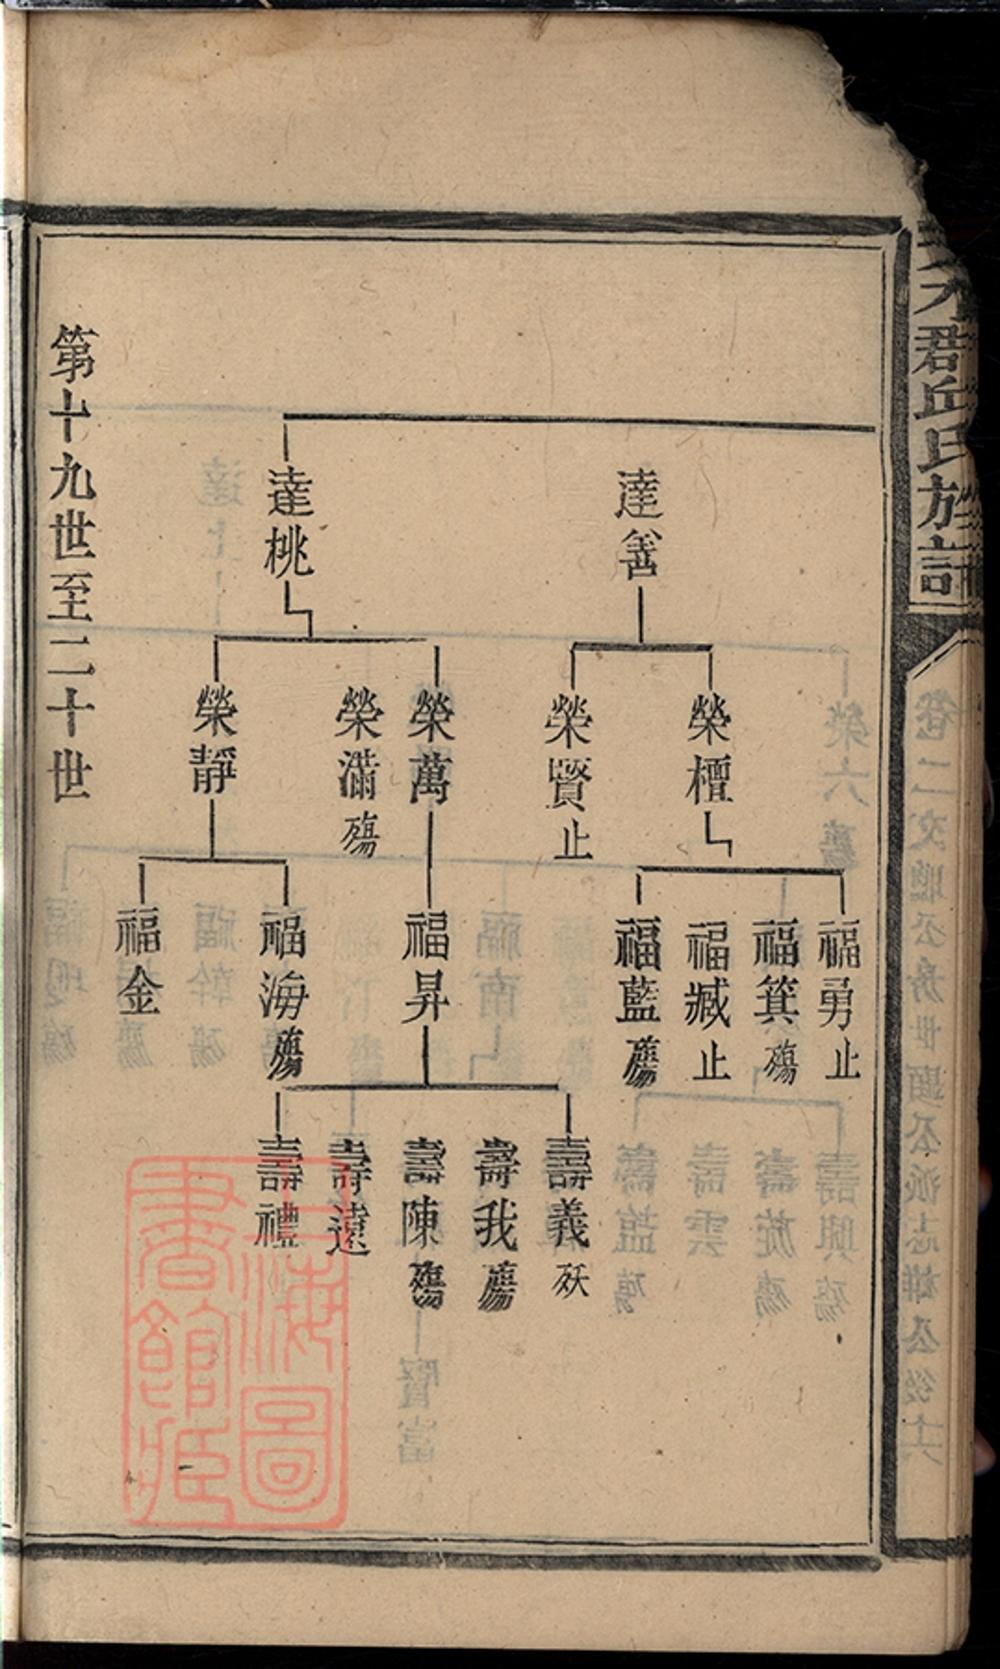 君丘氏族譜
達善
達桃
榮檀
榮賢止
榮萬
榮滿殤
榮靜
福勇止
福箕殤
福臧止
福藍殤
福昇
福海殤
福金
壽義殀
壽我殤
壽陳殤
壽遠
壽禮
第十九世至二十世
上海圖
書館藏